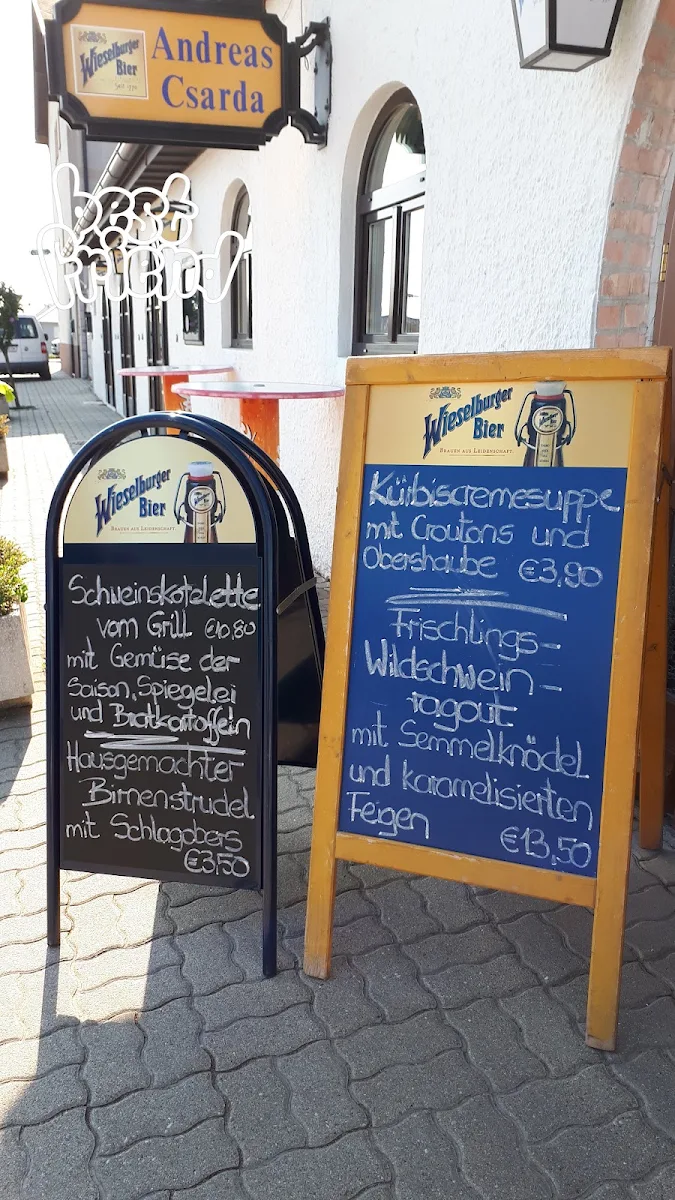 Wieselburger
Bier
Andreas
Csarda
best
friend
Wieselburger
Bier
BRAUEN AUS LEIDENSCHAFT.
Schweinskotelette
vom Grill €10,80
mit Gemüse der
Saison, Spiegelei
und Bratkartoffeln
Hausgemachter
Birnenstrudel
mit Schlagobers
€3,50
Wieselburger
Bier
BRAUEN AUS LEIDENSCHAFT.
Kürbiscremesuppe
mit Croutons und
Obershaube €3,90
Frischlings-
Wildschwein-
ragout
mit Semmelknödel
und karamelisierten
Feigen €13,50